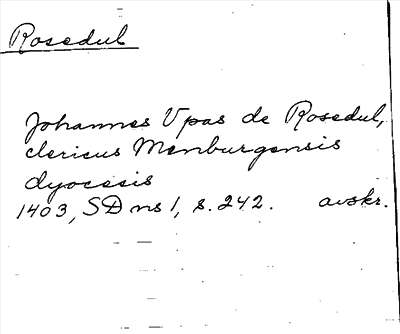 Rosedul
Johannes Vpas de Rosedul,
clericus Menburgensis
dyocesis
1403, SD ns 1, s. 242. avskr.